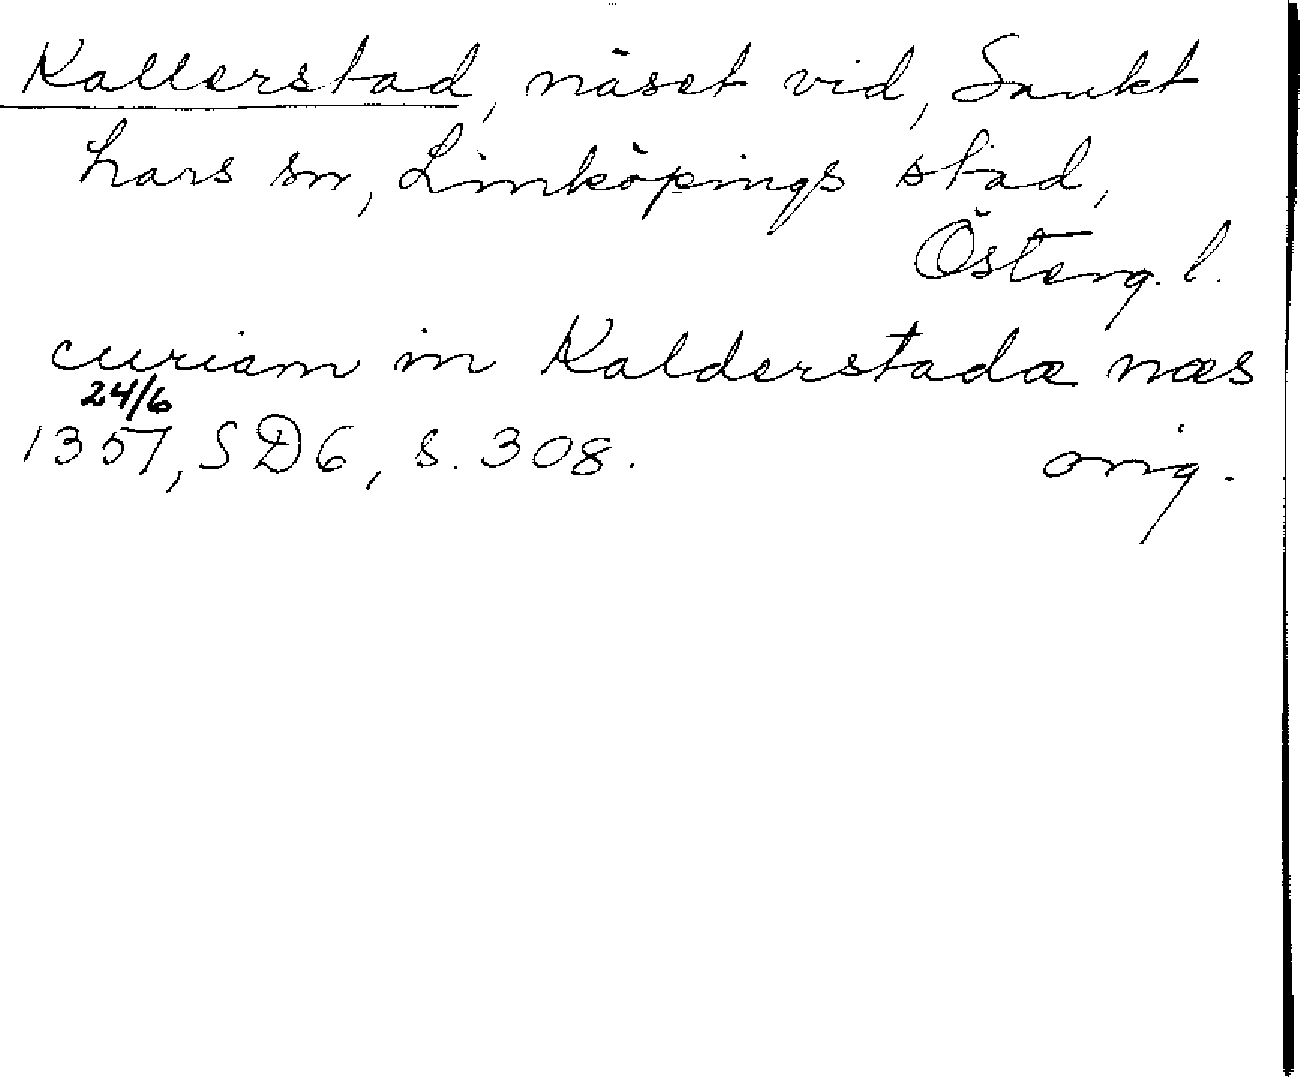 Kallerstad, näset vid, Sankt
Lars sn, Linköpings stad,
Österg. l.
curiam in Kalderstadæ næs
24/6
1357, SD6, s. 308. orig.